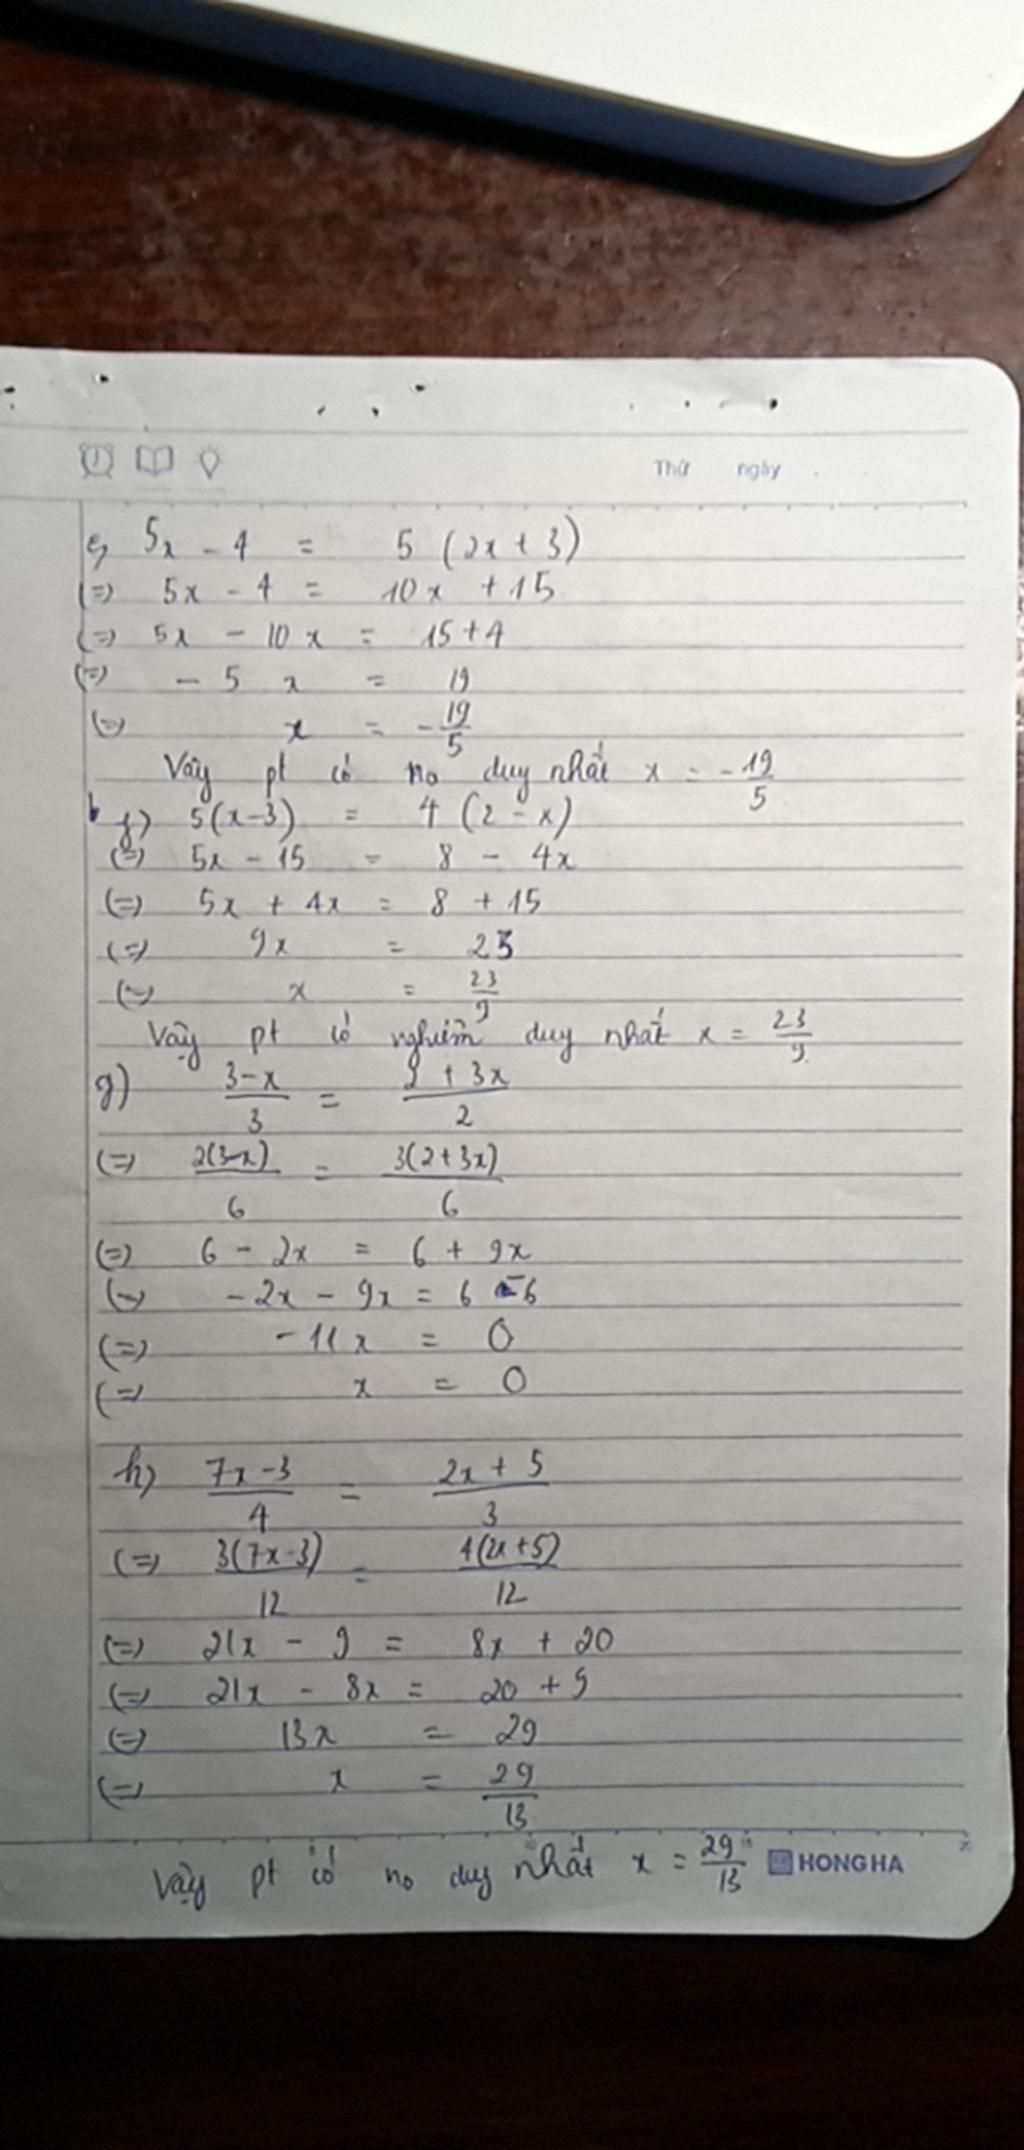 Thứ ngày
e, 5x - 4 = 5 (2x + 3)
(=) 5x - 4 = 10x + 15
(=) 5x - 10x = 15 + 4
(=) - 5x = 19
(=) x = -19/5
Vậy pt có no duy nhất x = -19/5
f) 5(x-3) = 4 (2-x)
(=) 5x - 15 = 8 - 4x
(=) 5x + 4x = 8 + 15
(=) 9x = 23
(=) x = 23/9
Vậy pt có nghiệm duy nhất x = 23/9
g) (3-x)/3 = (2 + 3x)/2
(=) 2(3-x)/6 = 3(2+3x)/6
(=) 6 - 2x = 6 + 9x
(=) -2x - 9x = 6 - 6
(=) -11x = 0
(=) x = 0
h) (7x-3)/4 = (2x + 5)/3
(=) 3(7x-3)/12 = 4(2x+5)/12
(=) 21x - 9 = 8x + 20
(=) 21x - 8x = 20 + 9
(=) 13x = 29
(=) x = 29/13
Vậy pt có no duy nhất x = 29/13 HONG HA